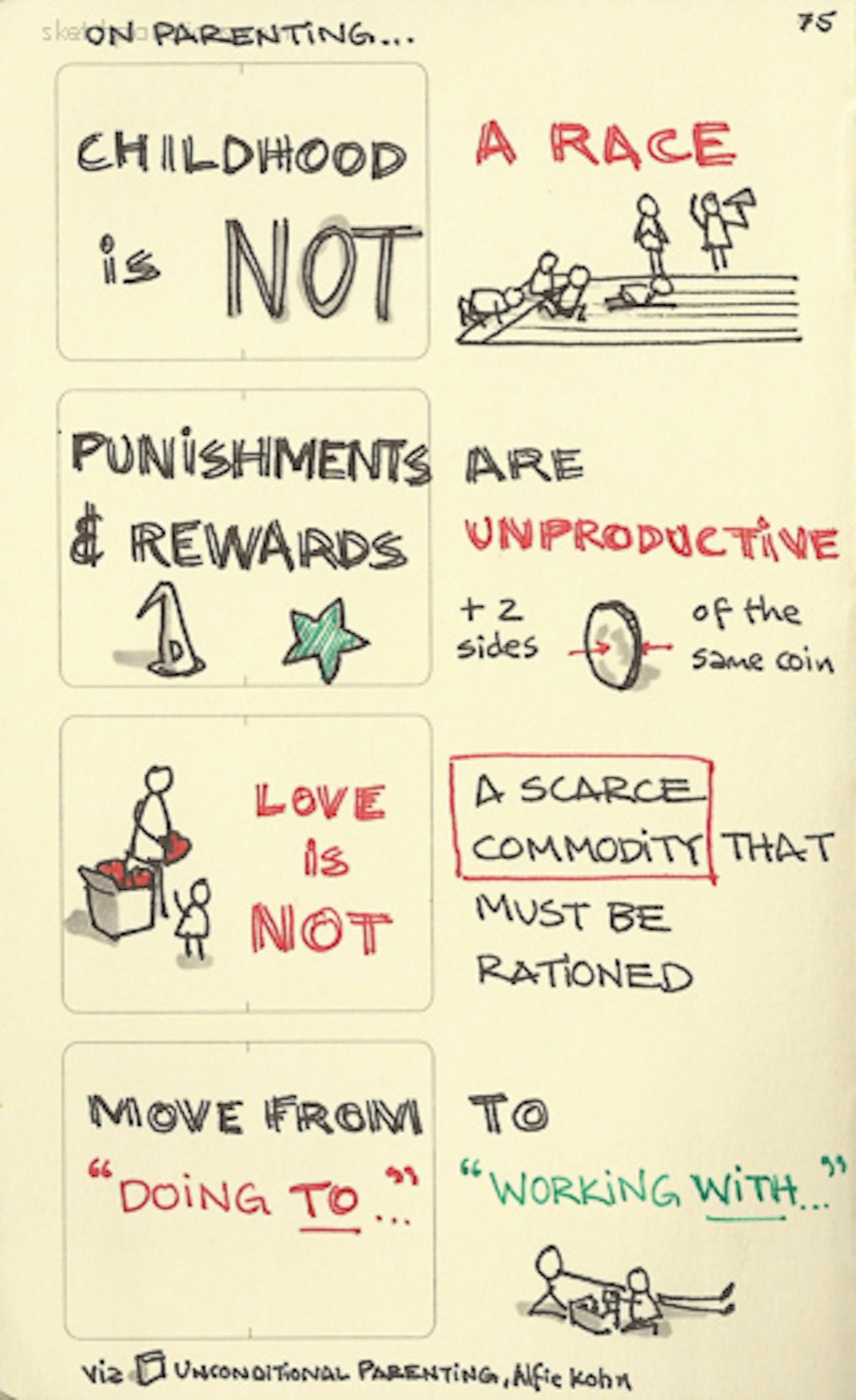 ON PARENTING...
75
CHILDHOOD
is NOT
A RACE
PUNISHMENTS
& REWARDS
D
ARE
UNPRODUCTIVE
+ 2
sides
of the
same coin
LOVE
is
NOT
A SCARCE
COMMODITY THAT
MUST BE
RATIONED
MOVE FROM
"DOING TO..."
TO
"WORKING WITH..."
via UNCONDITIONAL PARENTING, Alfie Kohn